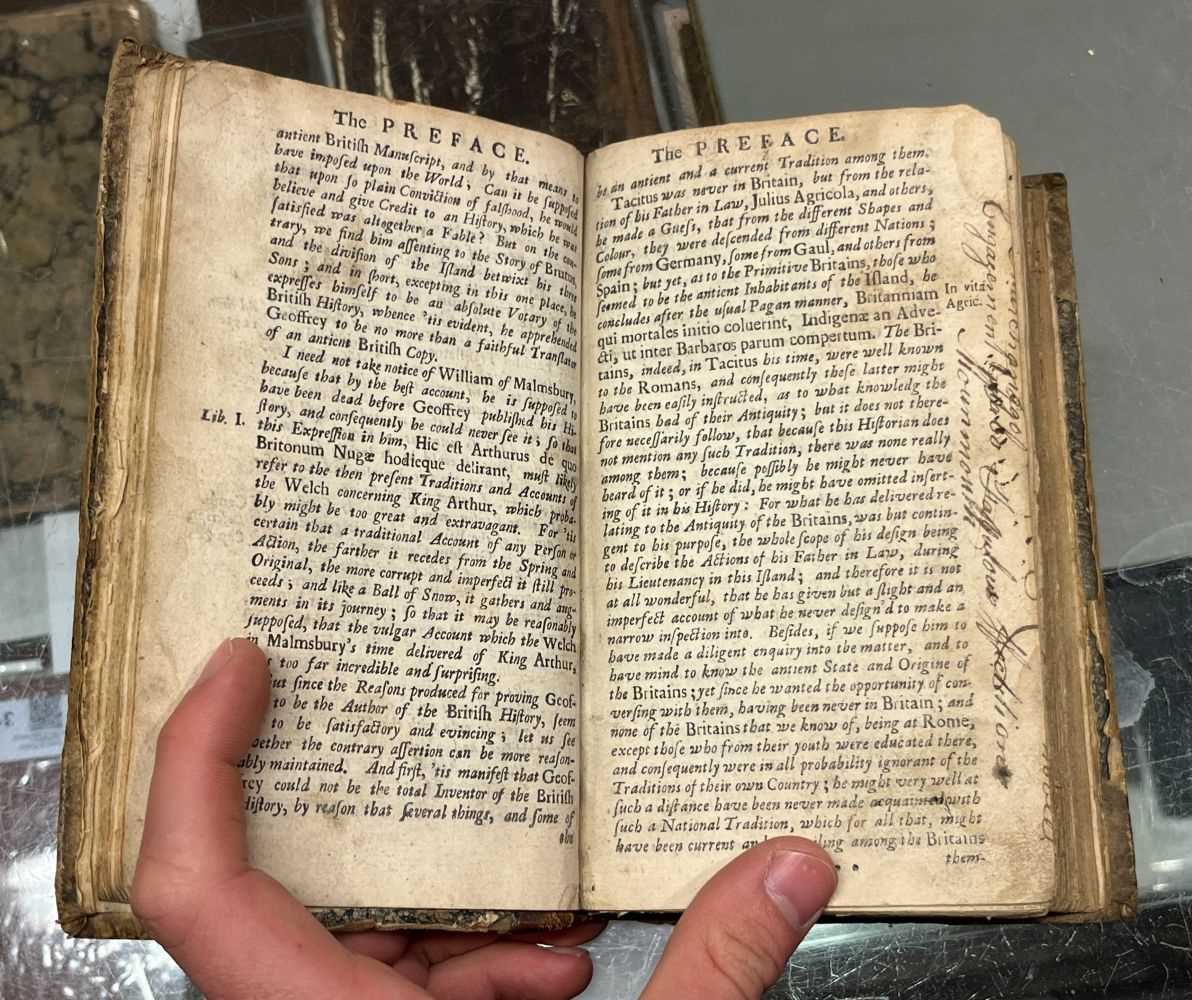 The PREFACE.
antient Britiſh Manuſcript, and by that means to
have impoſed upon the World; Can it be ſuppoſed
that upon ſo plain Conviction of falſhood, he would
believe and give Credit to an Hiſtory, which he was
ſatisfied was altogether a Fable? But on the con-
trary, we find him aſſenting to the Story of Brutus,
and the diviſion of the Iſland betwixt his three
Sons; and in ſhort, excepting in this one place, he
expreſſes himſelf to be an abſolute Votary of the
Britiſh Hiſtory, whence 'tis evident, he apprehended
Geoffrey to be no more than a faithful Tranſlator
of an antient Britiſh Copy.
I need not take notice of William of Malmsbury,
becauſe that by the beſt account, he is ſuppoſed to
have been dead before Geoffrey publiſhed his Hi-
ſtory, and conſequently he could never ſee it; ſo that
Lib. I.
this Expreſſion in him, Hic eſt Arthurus de quo
Britonum Nugæ hodieque delirant, muſt likely
refer to the then preſent Traditions and Accounts of
the Welch concerning King Arthur, which proba-
bly might be too great and extravagant. For 'tis
certain that a traditional Account of any Perſon or
Action, the farther it recedes from the Spring and
Original, the more corrupt and imperfect it ſtill pro-
ceeds; and like a Ball of Snow, it gathers and aug-
ments in its journey; ſo that it may be reaſonably
ſuppoſed, that the vulgar Account which the Welch
in Malmsbury's time delivered of King Arthur,
too far incredible and ſurpriſing.
ſince the Reaſons produced for proving Geof-
to be the Author of the Britiſh Hiſtory, ſeem
to be ſatisfactory and evincing; let us ſee
the contrary aſſertion can be more reaſon-
ably maintained. And firſt, 'tis manifeſt that Geof-
frey could not be the total Inventor of the Britiſh
Hiſtory, by reaſon that ſeveral things, and ſome of
The PREFACE.
be an antient and a current Tradition among them.
Tacitus was never in Britain, but from the rela-
tion of his Father in Law, Julius Agricola, and others,
he made a Gueſs, that from the different Shapes and
Colour, they were deſcended from different Nations;
ſome from Germany, ſome from Gaul, and others from
Spain; but yet, as to the Primitive Britains, thoſe who
ſeemed to be the antient Inhabitants of the Iſland, he
concludes after the uſual Pagan manner, Britanniam
In vita
Agric.
qui mortales initio coluerint, Indigenæ an Adve-
cti, ut inter Barbaros parum compertum. The Bri-
tains, indeed, in Tacitus his time, were well known
to the Romans, and conſequently theſe latter might
have been eaſily inſtructed, as to what knowledg the
Britains had of their Antiquity; but it does not there-
fore neceſſarily follow, that becauſe this Hiſtorian does
not mention any ſuch Tradition, there was none really
among them; becauſe poſſibly he might never have
heard of it; or if he did, he might have omitted inſert-
ing of it in his Hiſtory: For what he has delivered re-
lating to the Antiquity of the Britains, was but contin-
gent to his purpoſe, the whole ſcope of his deſign being
to deſcribe the Actions of his Father in Law, during
his Lieutenancy in this Iſland; and therefore it is not
at all wonderful, that he has given but a ſlight and an
imperfect account of what he never deſign'd to make a
narrow inſpection into. Beſides, if we ſuppoſe him to
have made a diligent enquiry into the matter, and to
have mind to know the antient State and Origine of
the Britains; yet ſince he wanted the opportunity of con-
verſing with them, having been never in Britain; and
none of the Britains that we know of, being at Rome,
except thoſe who from their youth were educated there,
and conſequently were in all probability ignorant of the
Traditions of their own Country; he might very well at
ſuch a diſtance have been never made acquainted with
ſuch a National Tradition, which for all that, might
have been current among the Britains
them-
Monmouth
Fabulous